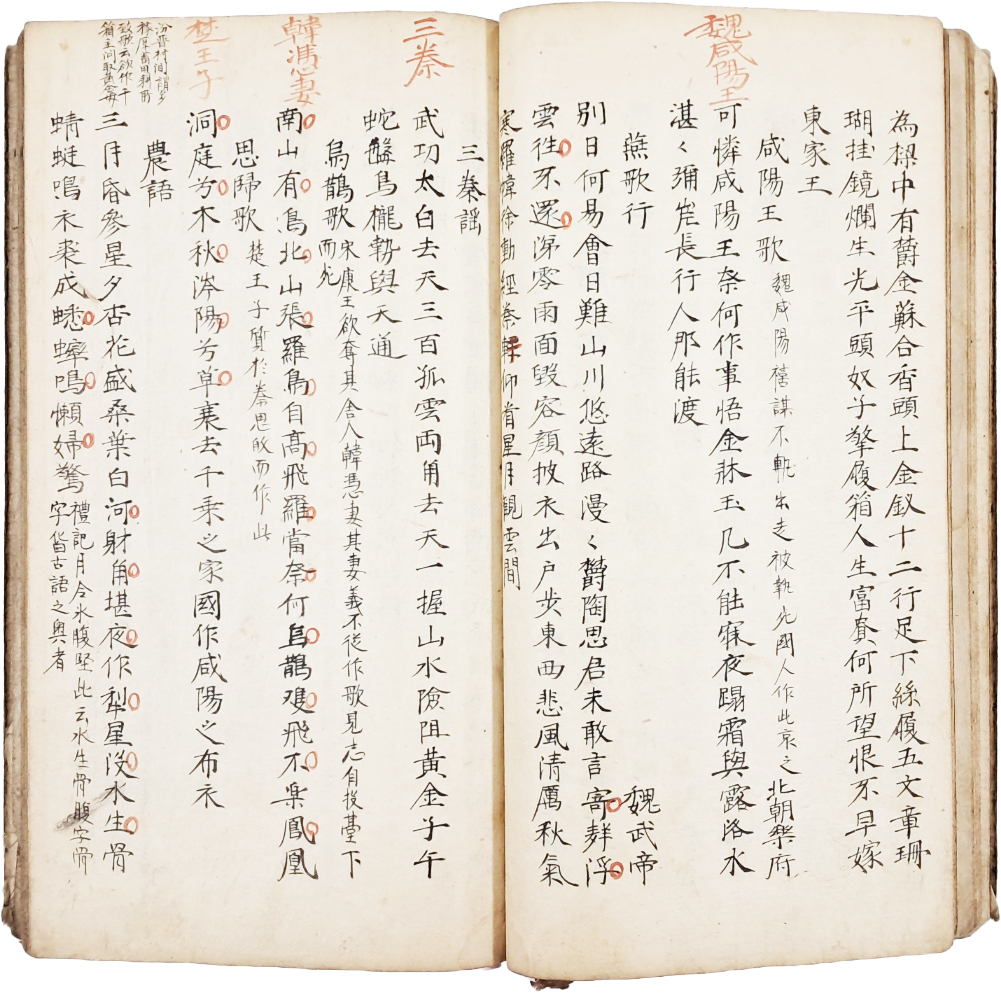 魏咸陽王
為樑中有欝金蘇合香頭上金釵十二行足下絲履五文章珊
瑚挂鏡爛生光平頭奴子擎履箱人生富貴何所望恨不早嫁
東家王
咸陽王歌 魏咸陽禧謀不軌出走被執死國人作此哀之 北朝樂府
可憐咸陽王奈何作事悟金牀玉几不能寐夜蹋霜與露洛水
湛々彌岸長行人那能渡
燕歌行 魏武帝
別日何易會日難山川悠遠路漫々欝陶思君未敢言寄聲浮
雲往不還涕零雨面毀容顏披衣出戶步東西悲風清厲秋氣
寒羅幃徐動經秦軒仰看星月觀雲間
三秦
三秦謠
武功太白去天三百孤雲兩角去天一握山水險阻黃金子午
蛇盤鳥櫳勢與天通
韓馮妻
烏鵲歌 宋康王欲奪其舍人韓憑妻其妻義不從作歌見志自投臺下
而死
南山有烏北山張羅烏自高飛羅當奈何烏鵲雙飛不樂鳳凰
楚王子
思歸歌 楚王子質於秦思故而作此
洞庭兮木秋涔陽兮草衰去千乘之家國作咸陽之布衣
農語
三月昏參星夕杏花盛桑葉白河射角堪夜作犁星沒水生骨
蜻蜓鳴衣裘成蟋蟀鳴懶婦驚 禮記月令氷腹堅此云水生骨腹字骨
字皆古語之奧者